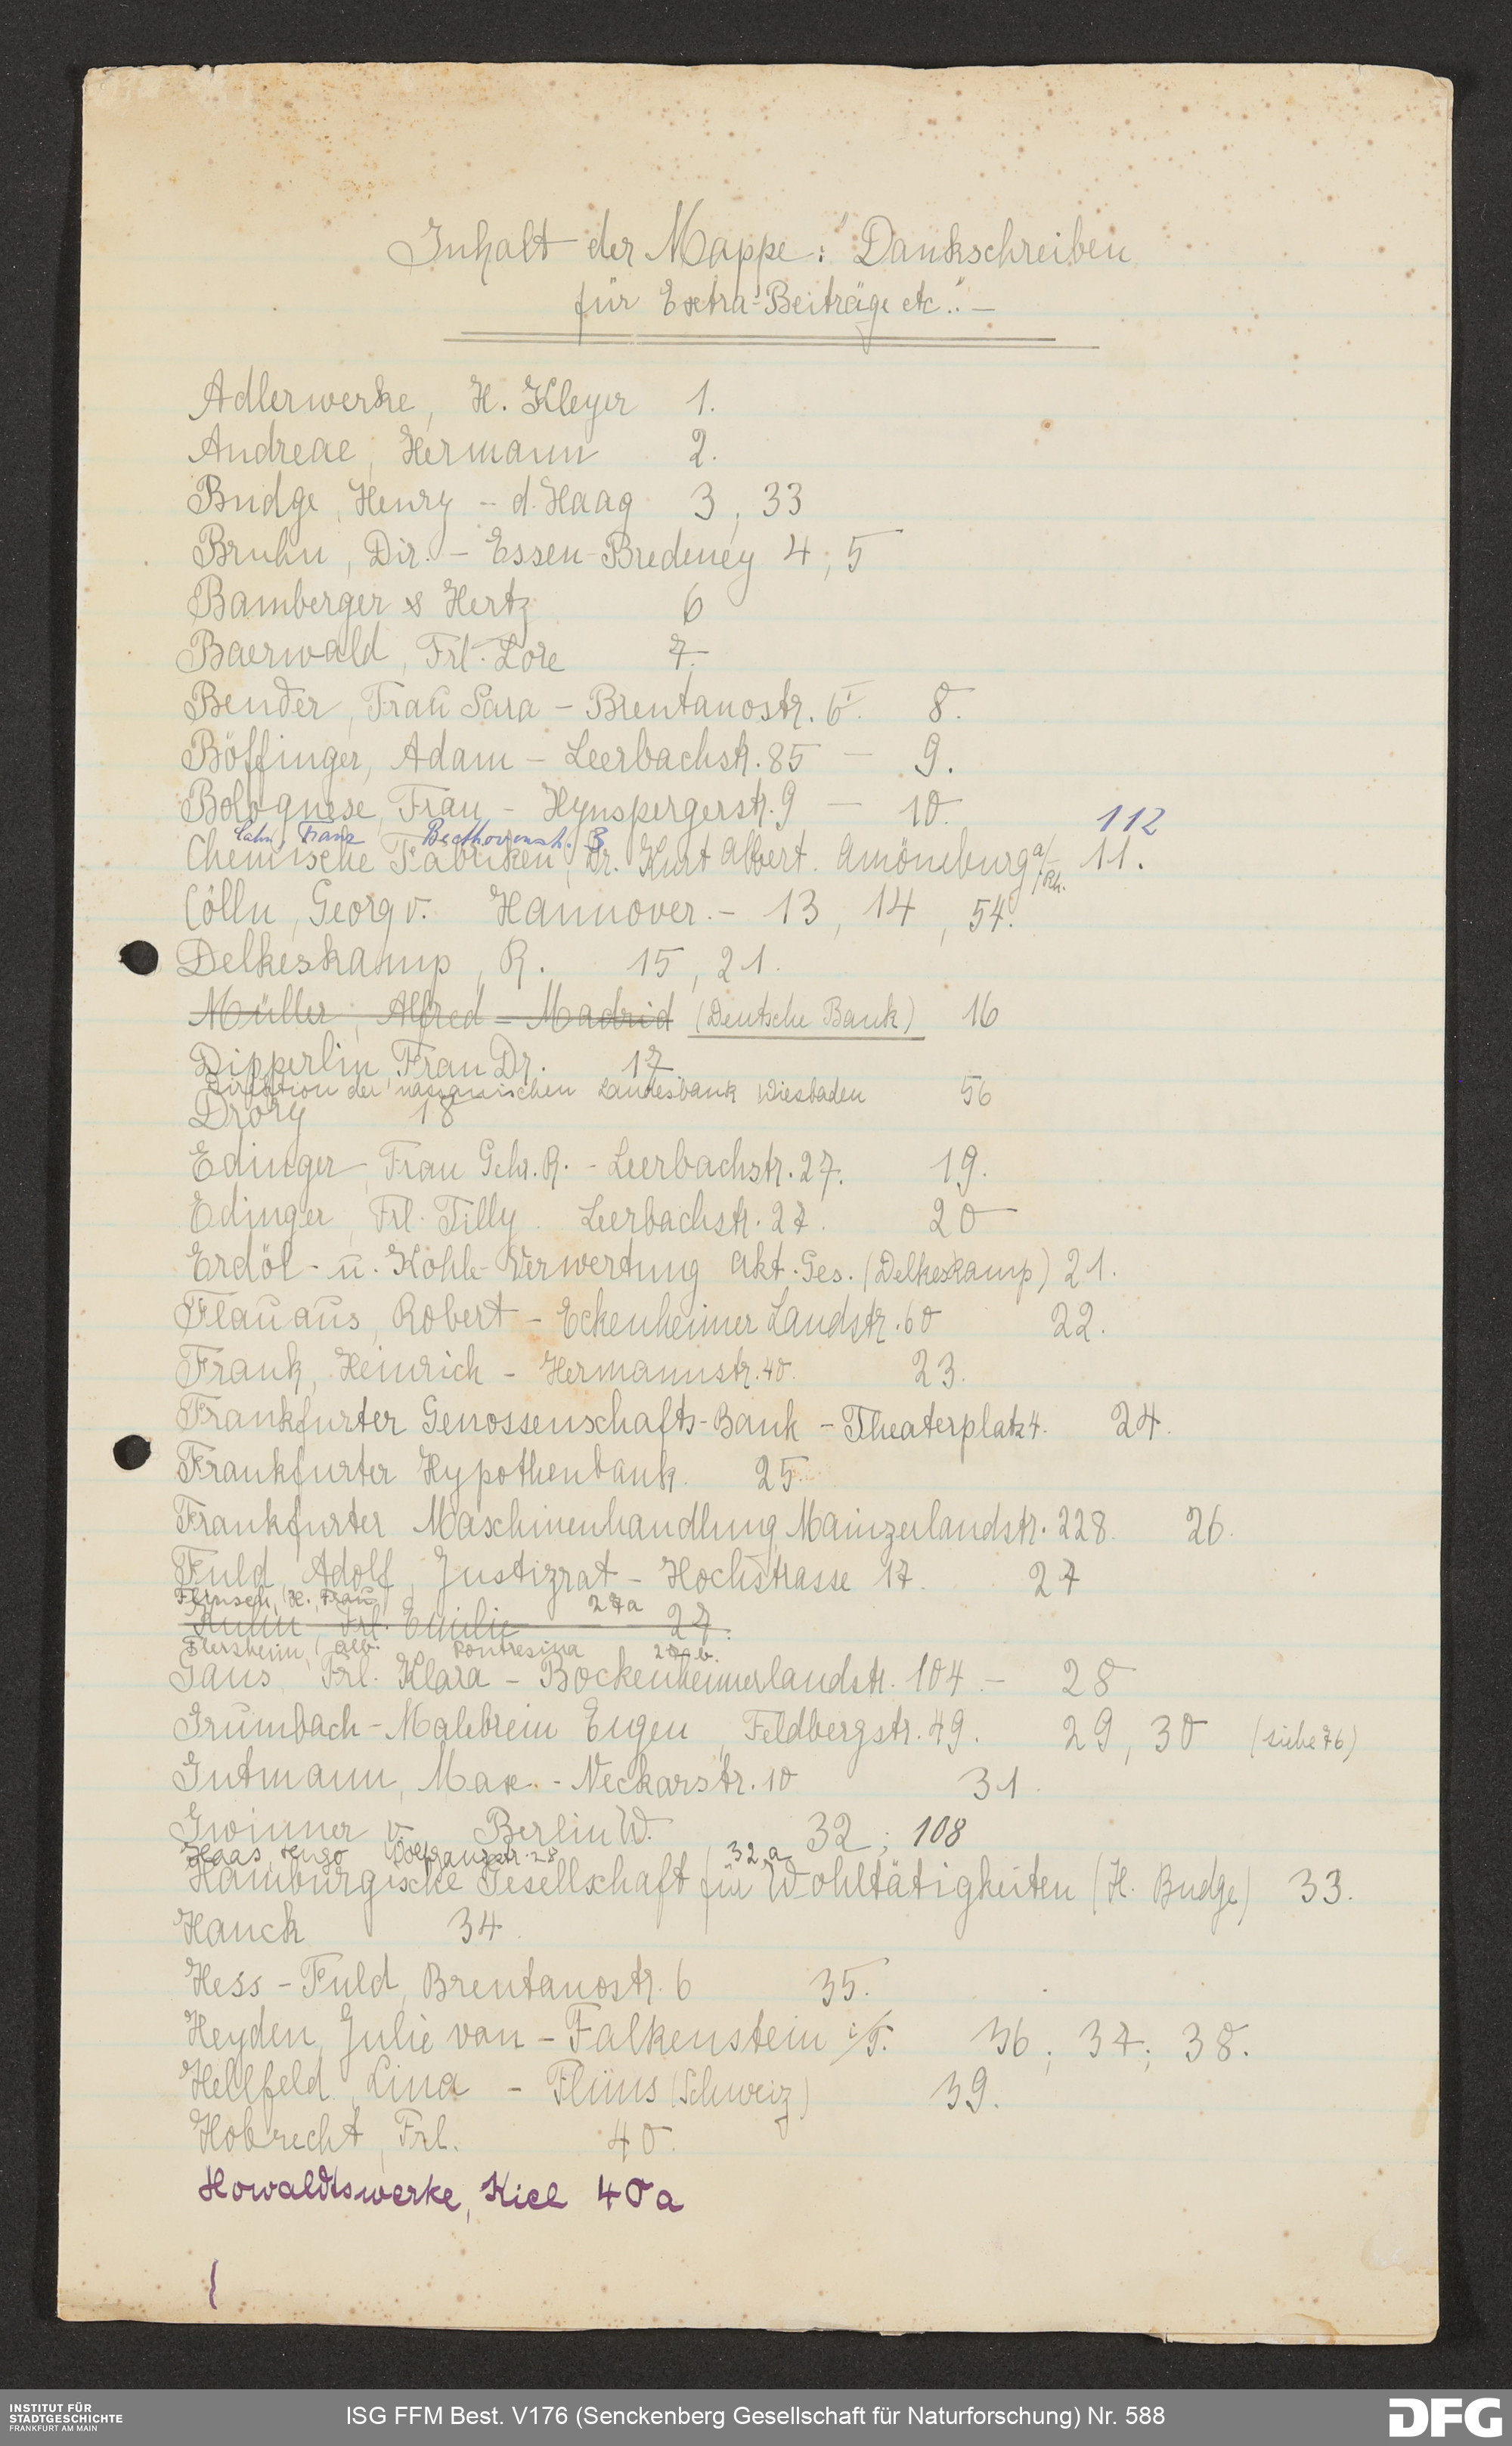 Inhalt der Mappe: "Dankschreiben
für Extra-Beiträge etc." –
Adlerwerke, H. Kleyer 1.
Andreae, Hermann 2.
Budge, Henry – d. Haag 3, 33
Bruhn, Dir. – Essen-Bredeney 4, 5
Bamberger & Hertz 6
Baerwald, Frl. Lore 7.
Bender, Frau Sara – Brentanostr. 6 I. 8.
Böffinger, Adam – Leerbachstr. 85 – 9.
Bolognese, Frau – Hynspergerstr. 9 – 10.
Cahn, Franz Beethovenstr. 3 112
Chemische Fabriken, Dr. Kurt Albert. Amöneburg a/Rh. 11.
Cölln, Georg v. Hannover. – 13, 14, 54.
Delkeskamp, R. 15, 21.
Müller, Alfred – Madrid (Deutsche Bank) 16
Dipperlin, Frau Dr. 17
Direktion der nassauischen Landesbank Wiesbaden 56
Drory 18
Edinger, Frau Geh. R. – Leerbachstr. 27. 19.
Edinger, Frl. Tilly. Leerbachstr. 27. 20
Erdöl- u. Kohle-Verwertung Akt. Ges. (Delkeskamp) 21.
Flauaus, Robert – Eckenheimer Landstr. 60 22.
Frank, Heinrich – Hermannstr. 40. 23.
Frankfurter Genossenschafts-Bank – Theaterplatz 4. 24.
Frankfurter Hypothenbank. 25.
Frankfurter Maschinenhandlung, Mainzerlandstr. 228. 26.
Fuld, Adolf, Justizrat – Hochstrasse 17. 27
Flinsch, H., Frau 27a
Frl. Emilie 27.
Flersheim, Alb. Pontresina 27b.
Gans, Frl. Klara – Bockenheimerlandstr. 104. – 28
Grumbach-Malebrein Eugen, Feldbergstr. 49. 29, 30 (siehe 76)
Gutmann, Max. – Neckarstr. 10 31.
Gwinner v. Berlin W. 32; 108
Haas, Hugo Wolfgangstr. 28 32a
Hamburgische Gesellschaft für Wohltätigkeiten (H. Budge) 33.
Hauck 34.
Hess-Fuld, Brentanostr. 6 35.
Heyden, Julie von – Falkenstein i/T. 36; 37; 38.
Hellfeld, Lina – Flims (Schweiz) 39.
Hobrecht, Frl. 40.
Howaldtswerke, Kiel 40a
INSTITUT FÜR
STADTGESCHICHTE
FRANKFURT AM MAIN
ISG FFM Best. V176 (Senckenberg Gesellschaft für Naturforschung) Nr. 588
DFG